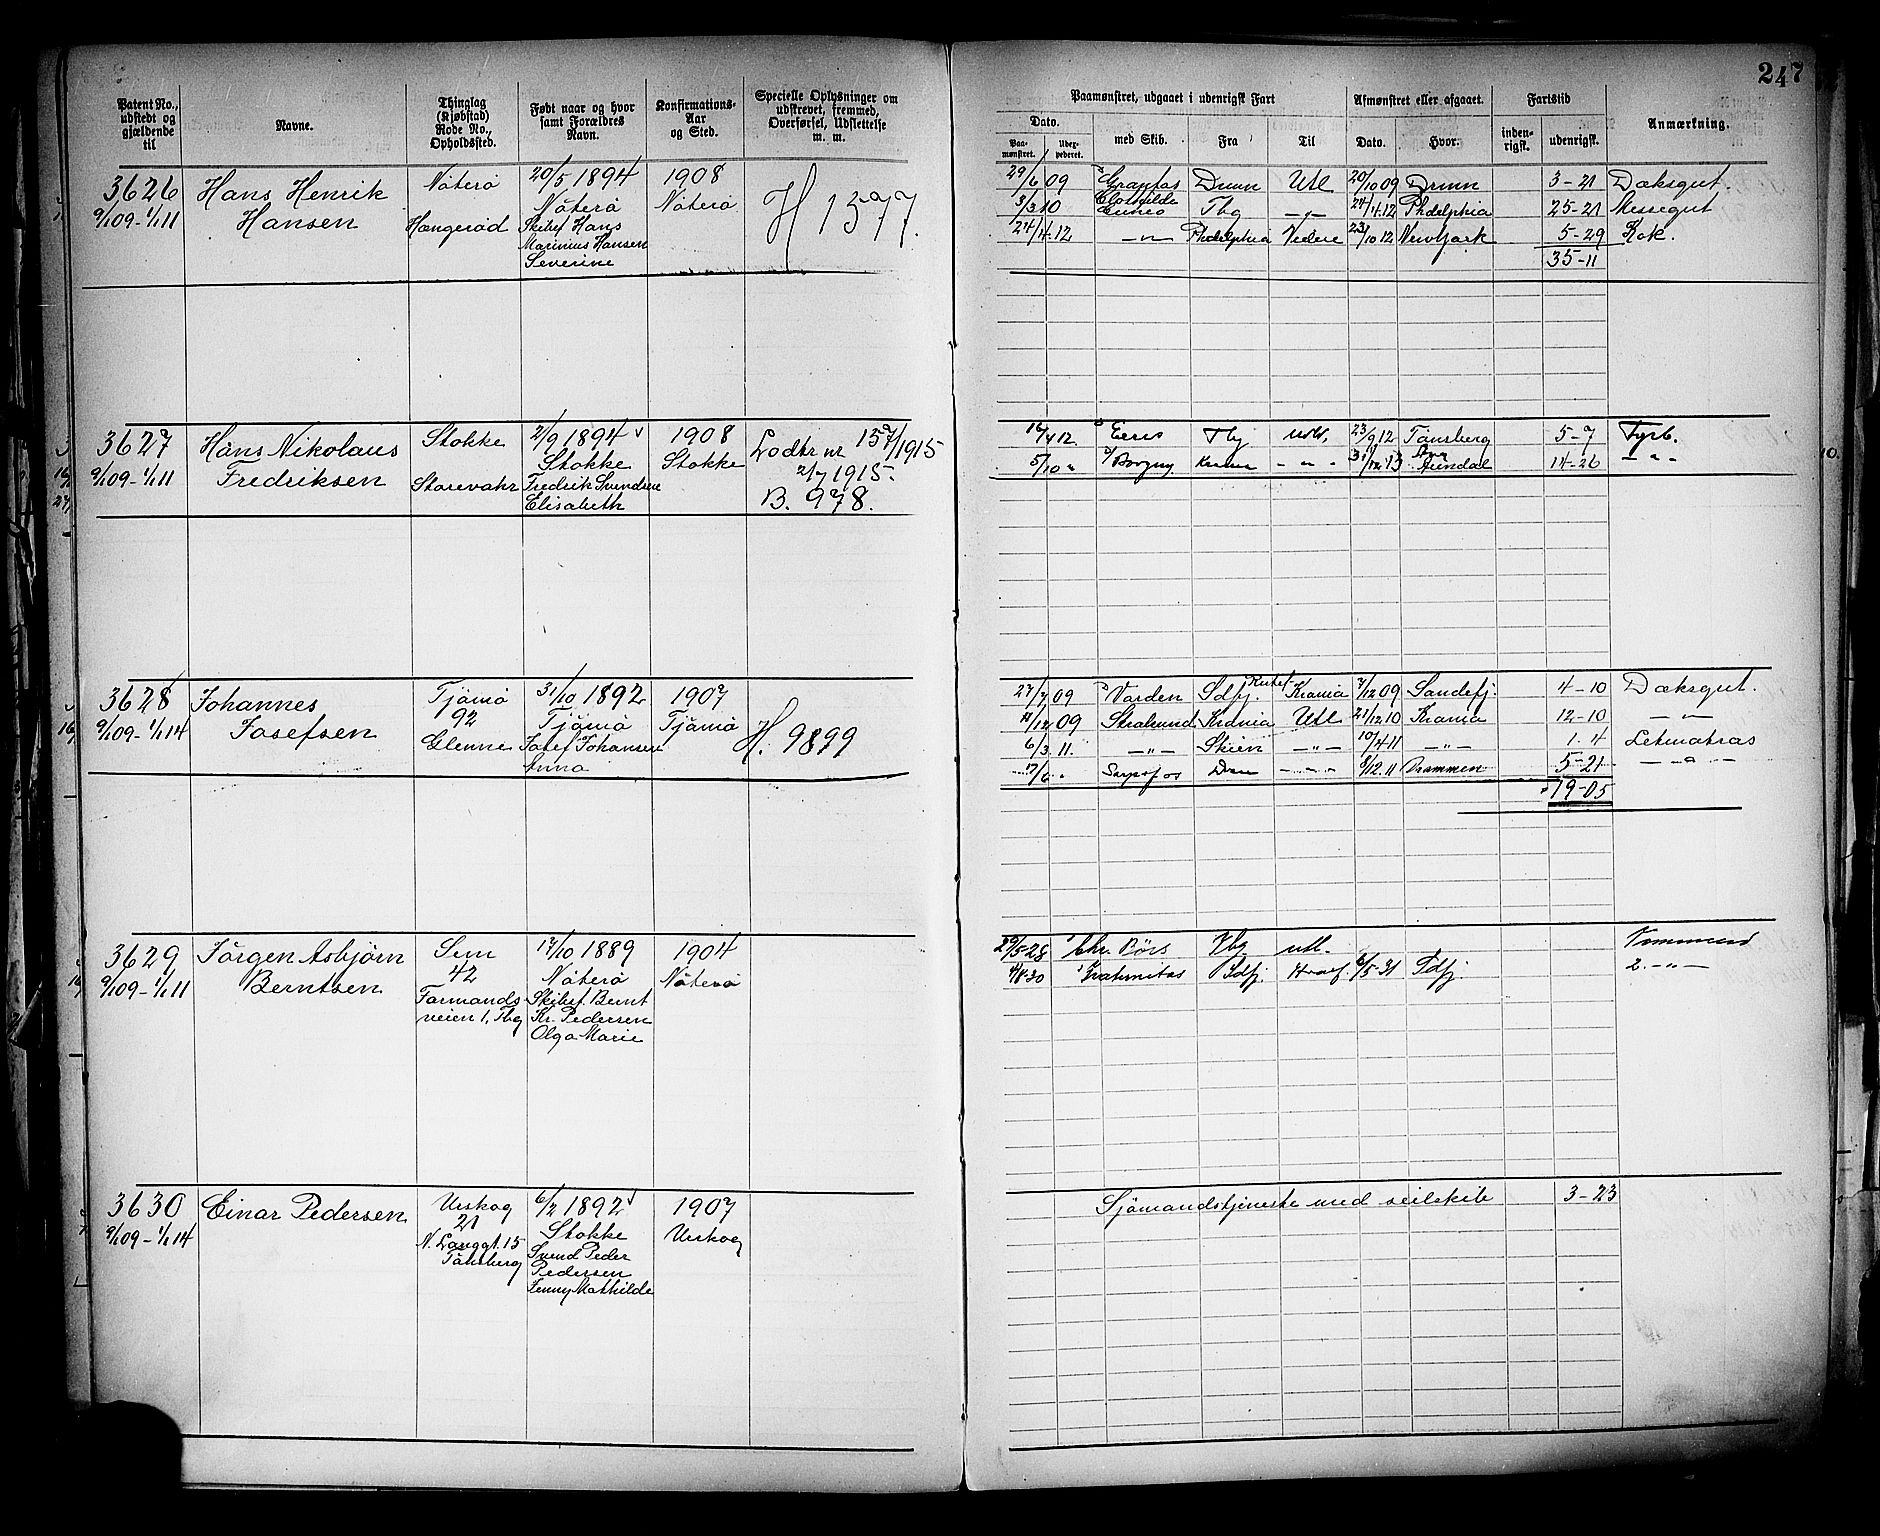 247
Patent No., udstedt og gjældende til
Navne.
Thinglag (Kjøbstad) Rode No., Opholdssted.
Født naar og hvor samt Forældres Navn.
Konfirmations-Aar og Sted.
Specielle Oplysninger om udskrevet, fremmed, Overførsel, Udslettelse m. m.
Paamønstret, udgaaet i udenrigsk Fart
Dato.
Paamønstret.
med Skib.
Fra
Til
Afmønstret eller afgaaet.
Dato.
Hvor.
Fartstid
indenrigsk.
udenrigsk.
Anmærkning.
3626 Hans Henrik Nøterø 20/5 1894 1908
9/1 09 - 1/1 11 Hansen Hængerød Nøterø Nøterø H 1377.
Skibsf Hans
Marinius Hansen
Severine
29/6 09 Drmn Utl 20/10 09 Drmn 3-21 Dæksgut.
3/3 10 Tbg -„- 24/4.12 Phdelphia 25-21 Messegut
24/4.12 -„- Phdelphia Videre 23/10 12 Newyork 5-29 Kok.
35-11
3627 Hans Nikolaus Stokke 2/9 1894 1908
9/1 09 - 1/1 11 Fredriksen Storevahr Stokke Stokke
Fredrik Svendsen
Elisabeth
Lodtr nr 157/1915
2/7 1915.
B. 978.
16/4 12. Tbg utl. 23/9 12 Tønsberg 5-7 Fyrb.
5/10 „ Borgny -„- 31/12 13 Arendal 14-26 -„-
3628 Johannes Tjømø 31/10 1892 1907
9/1 09 - 1/1 14 Josefsen 92 Tjømø Tjømø H. 9899
Glenne Josef Johansen
Anna
27/7 09 Varden Sdfj. Krania 7/12 09 Sandefj. 4-10 Dæksgut.
11/12 09 Stralsund Krania Utl 21/12 10 Krania 12-10 -„-
6/3 11. -„- Skien -„- 10/4 11 -„- 1.4 Letmatros
17/6 „ Sarpsfos Drm -„- 8/12.11 Drammen 5-21 -„-
19-05
3629 Jørgen Asbjørn Sem 17/10 1889 1904
9/1 09 - 1/1 11 Berntsen 42 Nøterø Nøterø
Farmands- Skibsf. Bernt
veien 1, Tbg Kr. Pedersen
Olga Marie
29/5-28 Chr. Börs Tbg utl.
Hvalf. 6/5-31 Tdfj. 2. -„-
3630 Einar Pedersen Urskog 6/2 1892 1907
9/1 09 - 1/1 14 21 Stokke Urskog
N. Langgt. 15 Svend Peder
Tønsberg Pedersen
Jenny Mathilde
Sjømandstjeneste med seilskib 3-23